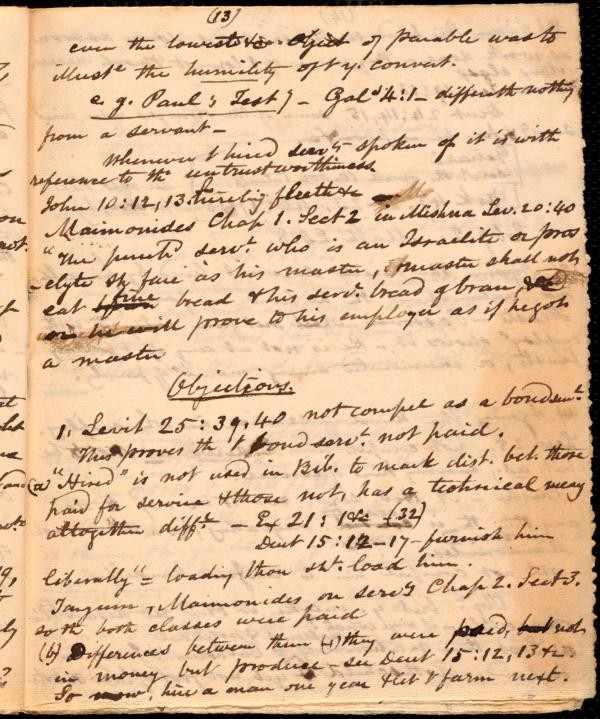 (13)
even the lowest &c. Object of parable was to
illuste the humility of ye. convert.
e. g. Paul's Testy - Gal. 4:1 - differeth nothing
from a servant -
Whenever t hired servts spoken of it is with
reference to thr untrustworthiness
John 10:12,13. hireling fleeth &c -
Maimonides Chap 1. Sect 2 in Mishna Lev. 20:40
"The purchd servt. who is an Israelite or pros
-elyte shl fare as his master, master shall not
eat fine bread & his servt. bread of bran,
he will prove to his employer as if he got
a master
Objections.
1. Levit 25:39,40 not compel as a bond servt
This proves th t bond servt. not paid.
(a) "Hired" is not used in Bib. to mark dist. bet. those
paid for service & those not, has a technical meang
altogether difft. - Ex 21:1 &c (32)
Deut 15:12-17 - furnish him
liberally" = loading thou sht. load him.
Targum, Maimonides on servts Chap 2. Sect 3.
so th both classes were paid
(b) Differences between them (1) they were paid, not
in money but produce - see Deut 15:12,13 &c
So now, hire a man one year & let t farm next.